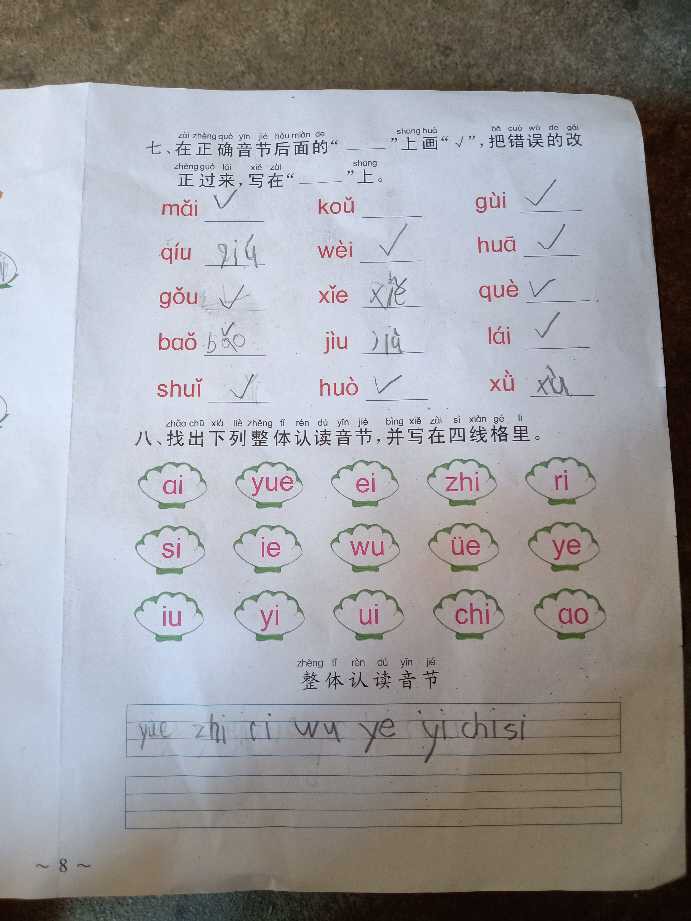 zài zhèng què yīn jié hòu miàn de shàng huà bǎ cuò wù de gǎi
七、在正确音节后面的“___”上画“√”,把错误的改
zhèng guò lái xiě zài shàng
正过来,写在“___”上。
mǎi √ koǔ gùi √
qíu qiú wèi √ huā √
gǒu √ xǐe xiě què √
baǒ bǎo jìu jiù lái √
shuǐ √ huò √ xǜ xù
zhǎo chū xià liè zhěng tǐ rèn dú yīn jié bìng xiě zài sì xiàn gé lǐ
八、找出下列整体认读音节,并写在四线格里。
ai yue ei zhi ri
si ie wu üe ye
iu yi ui chi ao
zhěng tǐ rèn dú yīn jié
整体认读音节
yue zhi ri wu ye yi chi si
~ 8 ~